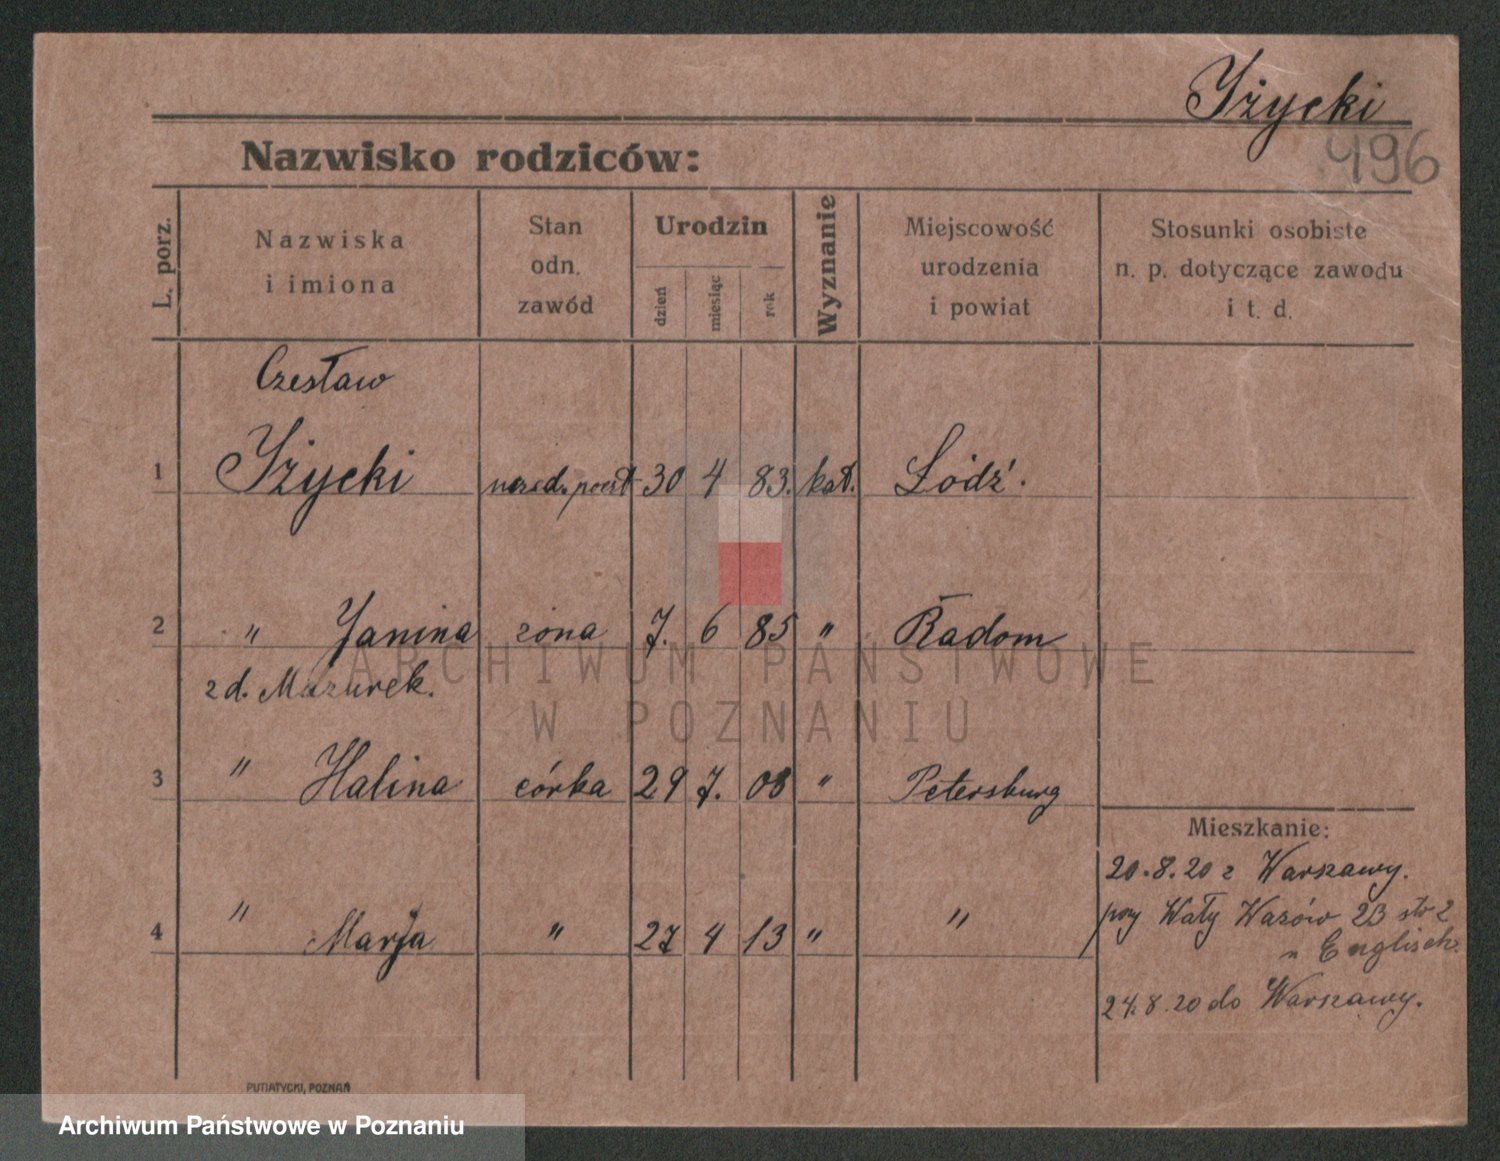 Iżycki
496
Nazwisko rodziców:
L. porz.
Nazwiska
i imiona
Stan
odn.
zawód
Urodzin
dzień
miesiąc
rok
Wyznanie
Miejscowość
urodzenia
i powiat
Stosunki osobiste
n. p. dotyczące zawodu
i t. d.
Czesław
1 Iżycki urzęd. poczt 30 4 83. kat. Łódź.
2 " Janina żona 7. 6 85 " Radom
z d. Mazurek.
3 " Halina córka 29 7. 08 " Petersburg
4 " Marja " 27 4 13 " "
Mieszkanie:
20.8.20 z Warszawy.
przy Wały Wazów 23 str 2
u Englisch.
24.8.20 do Warszawy.
PUTIATYCKI, POZNAŃ
ARCHIWUM PAŃSTWOWE
W POZNANIU
Archiwum Państwowe w Poznaniu